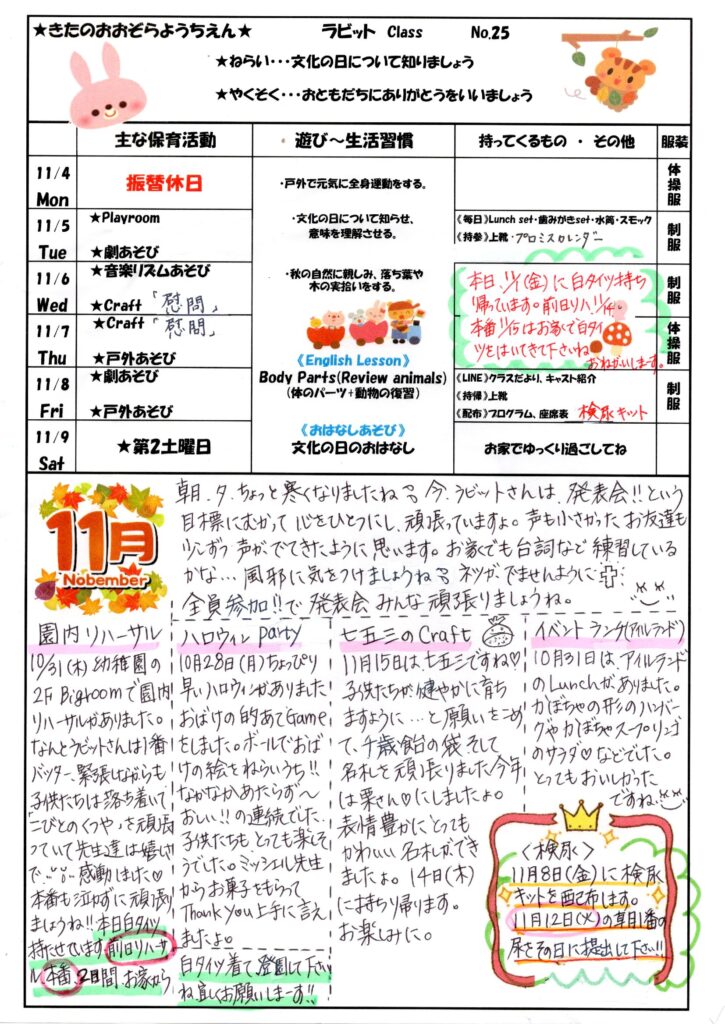 ★きたのおおぞらようちえん★ ラビット Class No.25
★ねらい･･･文化の日について知りましょう
★やくそく･･･おともだちにありがとうをいいましょう
主な保育活動 遊び～生活習慣 持ってくるもの ・ その他 服装
11/4 Mon
振替休日
・戸外で元気に全身運動をする。
体操服
11/5 Tue
★Playroom
★劇あそび
・文化の日について知らせ、
意味を理解させる。
《毎日》Lunch set・歯みがきset・水筒・スモック
《持参》上靴・プロミスカレンダー
制服
11/6 Wed
★音楽リズムあそび
★Craft「慰問」
・秋の自然に親しみ、落ち葉や
木の実拾いをする。
本日、11/1(金)に白タイツ持ち
帰っています。前日リハ11/14
本番11/15はお家で白タイ
ツをはいてきて下さいね
おねがいします。
制服
11/7 Thu
★Craft「慰問」
★戸外あそび
《English Lesson》
体操服
11/8 Fri
★劇あそび
★戸外あそび
Body Parts(Review animals)
(体のパーツ+動物の復習)
《LINE》クラスだより、キャスト紹介
《持帰》上靴
《配布》プログラム、座席表 検尿キット
制服
11/9 Sat
★第2土曜日
《おはなしあそび》
文化の日のおはなし
お家でゆっくり過ごしてね
11月
Nobember
朝、夕、ちょっと寒くなりましたね。今、ラビットさんは、発表会!!という
目標にむかって心をひとつにし、頑張っていますよ。声も小さかったお友達も
少しずつ声がでてきたように思います。お家でも台詞など練習している
かな… 風邪に気をつけましょうね。ネツがでませんように
全員参加!!で発表会みんな頑張りましょうね。
園内リハーサル
10/31(木)幼稚園の
2F Bigroomで園内
リハーサルがありました。
なんとラビットさんは1番
バッター、緊張しながらも
子供たちは落ち着いて
"こびとのくつや"を頑張
っていて先生達は嬉しい
で、感動しました♡
本番も泣かずに頑張り
ましょうね!!本日白タイツ
持たせています。前日リハーサ
ル、本番、2日間、お家から
ハロウィンparty
10月28日(月)ちょっぴり
早いハロウィンがありました
おばけの的あてGame
をしました。ボールでおば
けの絵をねらいうち!!
なかなかあたらず〜
おしい!!の連続でした。
子供たちもとっても楽しそ
うでした。ミッシェル先生
からお菓子をもらって
Thank You上手に言え
ましたよ。
白タイツ着て、登園して下さい
ね。宜しくお願いしまーす!!
七五三のCraft
11月15日は七五三ですね♡
子供たちが健やかに育ち
ますように…と願いをこめ
て、千歳飴の袋そして
名札を頑張りました今年
は栗さん♡にしましたよ。
表情豊かにとっても
かわいい名札ができ
ましたよ。14日(木)
に持ち帰ります。
お楽しみに。
イベントランチ(アイルランド)
10月31日は、アイルランド
のLunchがありました。
かぼちゃの形のハンバー
グやかぼちゃスープリンゴ
のサラダ♡などでした。
とってもおいしかった
ですね。
<検尿>
11月8日(金)に検尿
キットを配布します。
11月12日(火)の朝1番の
尿をその日に提出して下さい!!